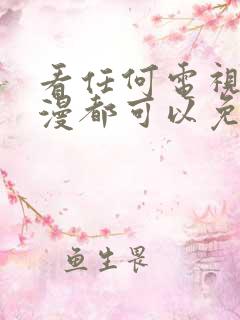 看任何電視
漫都可以免
鱼生畏